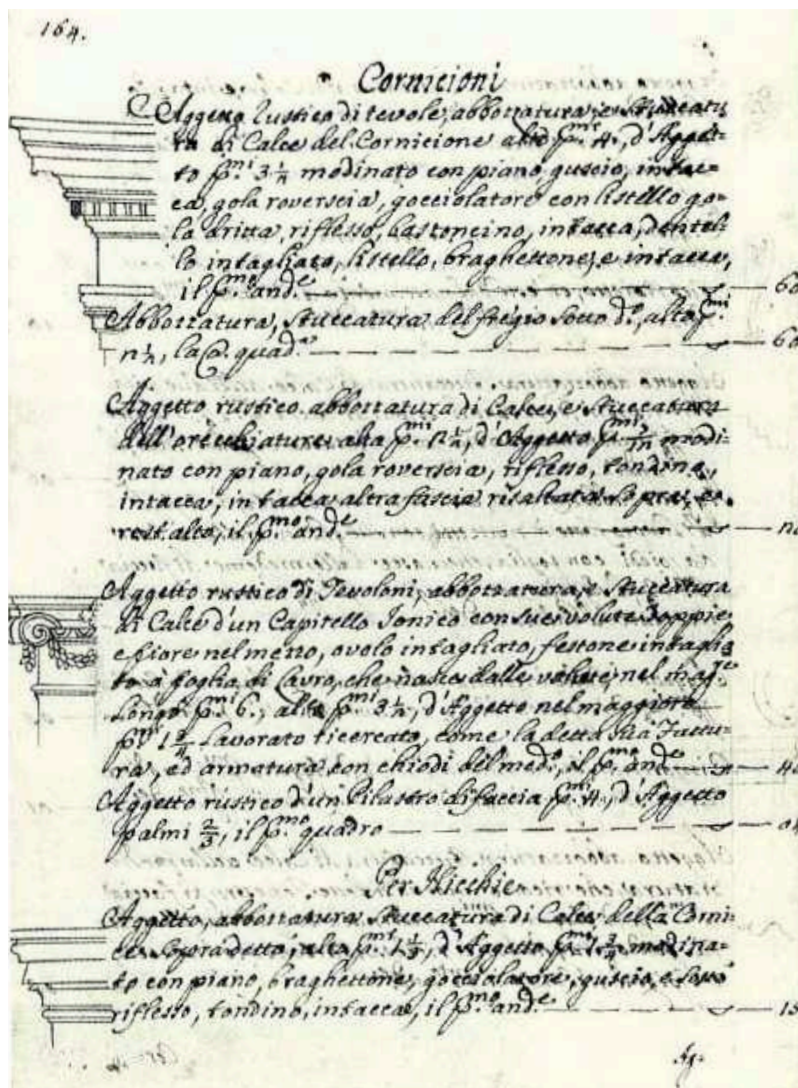 164.
Cornicioni
Aggetto rustico di tevole, abbozzatura, e stuccatu
ra di Calce del Cornicione alto p.mi 4., d'Agget=
to p.mi 3 1/2 modinato con piano, guscio, intac=
ca, gola roverscia, gocciolatore con listello go=
la dritta, riflesso, bastoncino, intacca, dentel=
lo intagliato, listello, braghettone, e intacca,
il p.mo and.e — 60
Abbozzatura, stuccatura del fregio sotto d.o, alto p.mi
2 1/2, la quad.a — 60
Aggetto rustico abbozzatura di Calce, e stuccatura
dell'orecchiature alta p.mi 2 1/2, d'Aggetto p.mi modi=
nato con piano, gola roverscia, riflesso, tondino,
intacca, intacca altra fascia risaltata sopra, e
rest.alto, il p.mo and.e
Aggetto rustico di Tevoloni, abbozzatura, e stuccatura
di Calce d'un Capitello Jonico con sue volute doppie
e fiore nel mezzo, ovolo intagliato, festone intaglia
to a foglia di Lavro, che nasce dalle volute, nel mag.e
Longo p.mi 6., alto p.mi 3 1/2, d'Aggetto nel maggiore
p.mi 1 3/4 Lavorato ricercato, come la detta sua Fattu=
ra, ed armatura con chiodi del med.o, il p.mo and.e — 40
Aggetto rustico d'un Pilastro di faccia p.mi 4., d'Aggetto
palmi 2/3, il p.mo quadro — 04
Per Nicchie
Aggetto, abbozzatura stuccatura di Calce della Corni=
ce sopra detto, alta p.mi 1 1/3, d'Aggetto p.mi 1 3/4 modina=
to con piano, braghettone, gocciolatore, guscio, e sotto
riflesso, tondino, intacca, il p.mo and.e — 15
Ag=